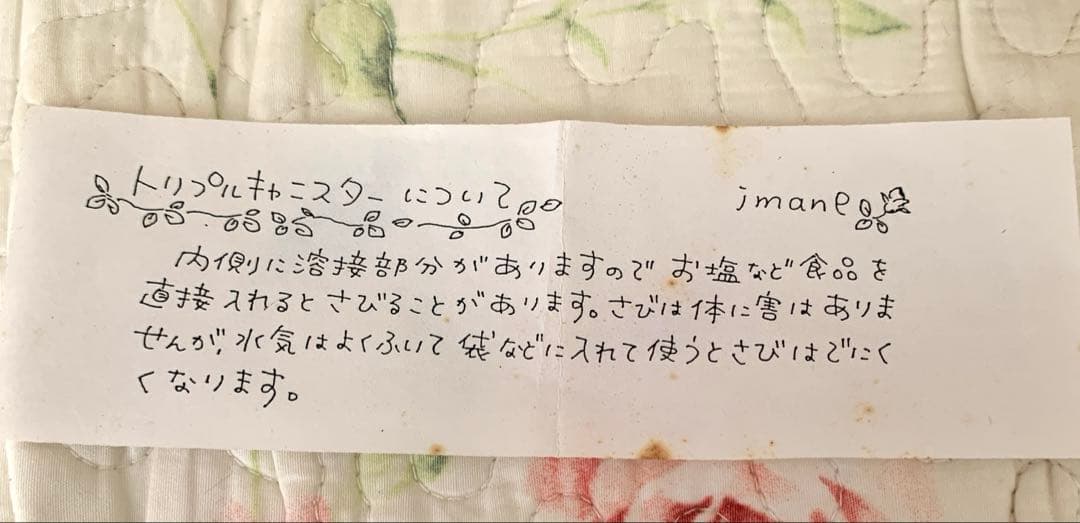 トリプルキャニスターについて
imane
内側に溶接部分がありますので お塩など食品を
直接入れるとさびることがあります。さびは体に害はありま
せんが、水気はよくふいて袋などに入れて使うとさびはでにく
くなります。